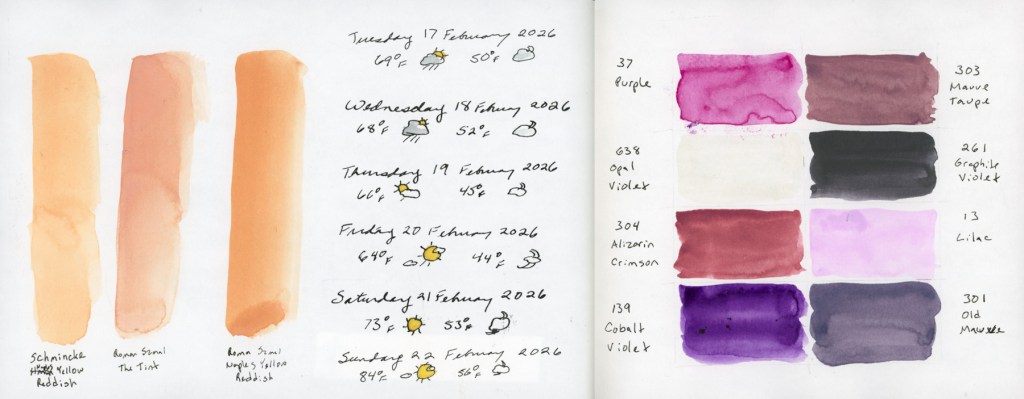 Schmincke
Yellow
Reddish
Roman Szmal
The Tint
Roman Szmal
Naples Yellow
Reddish
Tuesday 17 February 2026
69°F 50°F
Wednesday 18 February 2026
68°F 52°F
Thursday 19 February 2026
66°F 45°F
Friday 20 February 2026
64°F 44°F
Saturday 21 February 2026
73°F 53°F
Sunday 22 February 2026
84°F 56°F
37
Purple
303
Mauve
Taupe
638
Opal
Violet
261
Graphite
Violet
304
Alizarin
Crimson
13
Lilac
139
Cobalt
Violet
301
Old
Mauve